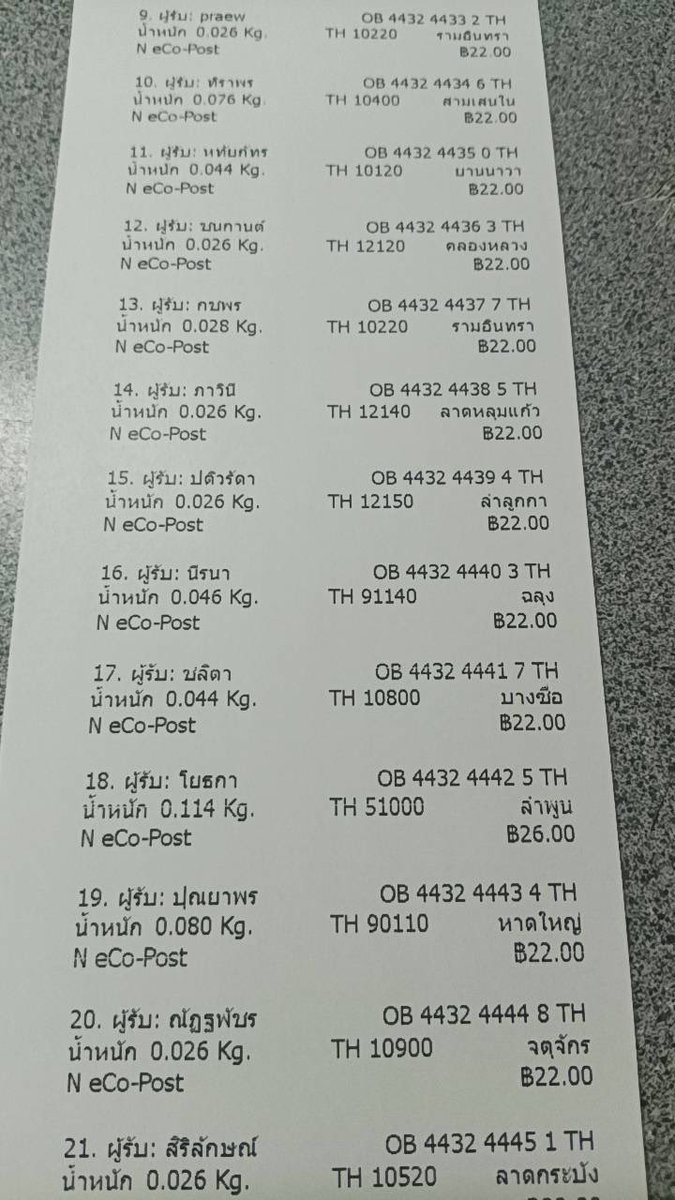 9. ผู้รับ: praew OB 4432 4433 2 TH
น้ำหนัก 0.026 Kg. TH 10220 รามอินทรา
N eCo-Post ฿22.00
10. ผู้รับ: ทีราพร OB 4432 4434 6 TH
น้ำหนัก 0.076 Kg. TH 10400 สามเสนใน
N eCo-Post ฿22.00
11. ผู้รับ: หทัยภัทร OB 4432 4435 0 TH
น้ำหนัก 0.044 Kg. TH 10120 ยานนาวา
N eCo-Post ฿22.00
12. ผู้รับ: ชนกานต์ OB 4432 4436 3 TH
น้ำหนัก 0.026 Kg. TH 12120 คลองหลวง
N eCo-Post ฿22.00
13. ผู้รับ: กชพร OB 4432 4437 7 TH
น้ำหนัก 0.028 Kg. TH 10220 รามอินทรา
N eCo-Post ฿22.00
14. ผู้รับ: ภาวินี OB 4432 4438 5 TH
น้ำหนัก 0.026 Kg. TH 12140 ลาดหลุมแก้ว
N eCo-Post ฿22.00
15. ผู้รับ: ปดิวรัดา OB 4432 4439 4 TH
น้ำหนัก 0.026 Kg. TH 12150 ลำลูกกา
N eCo-Post ฿22.00
16. ผู้รับ: นิรนา OB 4432 4440 3 TH
น้ำหนัก 0.046 Kg. TH 91140 ฉลุง
N eCo-Post ฿22.00
17. ผู้รับ: ชลิตา OB 4432 4441 7 TH
น้ำหนัก 0.044 Kg. TH 10800 บางซื่อ
N eCo-Post ฿22.00
18. ผู้รับ: โยธกา OB 4432 4442 5 TH
น้ำหนัก 0.114 Kg. TH 51000 ลำพูน
N eCo-Post ฿26.00
19. ผู้รับ: ปุณยาพร OB 4432 4443 4 TH
น้ำหนัก 0.080 Kg. TH 90110 หาดใหญ่
N eCo-Post ฿22.00
20. ผู้รับ: ณัฏฐพัชร OB 4432 4444 8 TH
น้ำหนัก 0.026 Kg. TH 10900 จตุจักร
N eCo-Post ฿22.00
21. ผู้รับ: สิริลักษณ์ OB 4432 4445 1 TH
น้ำหนัก 0.026 Kg. TH 10520 ลาดกระบัง